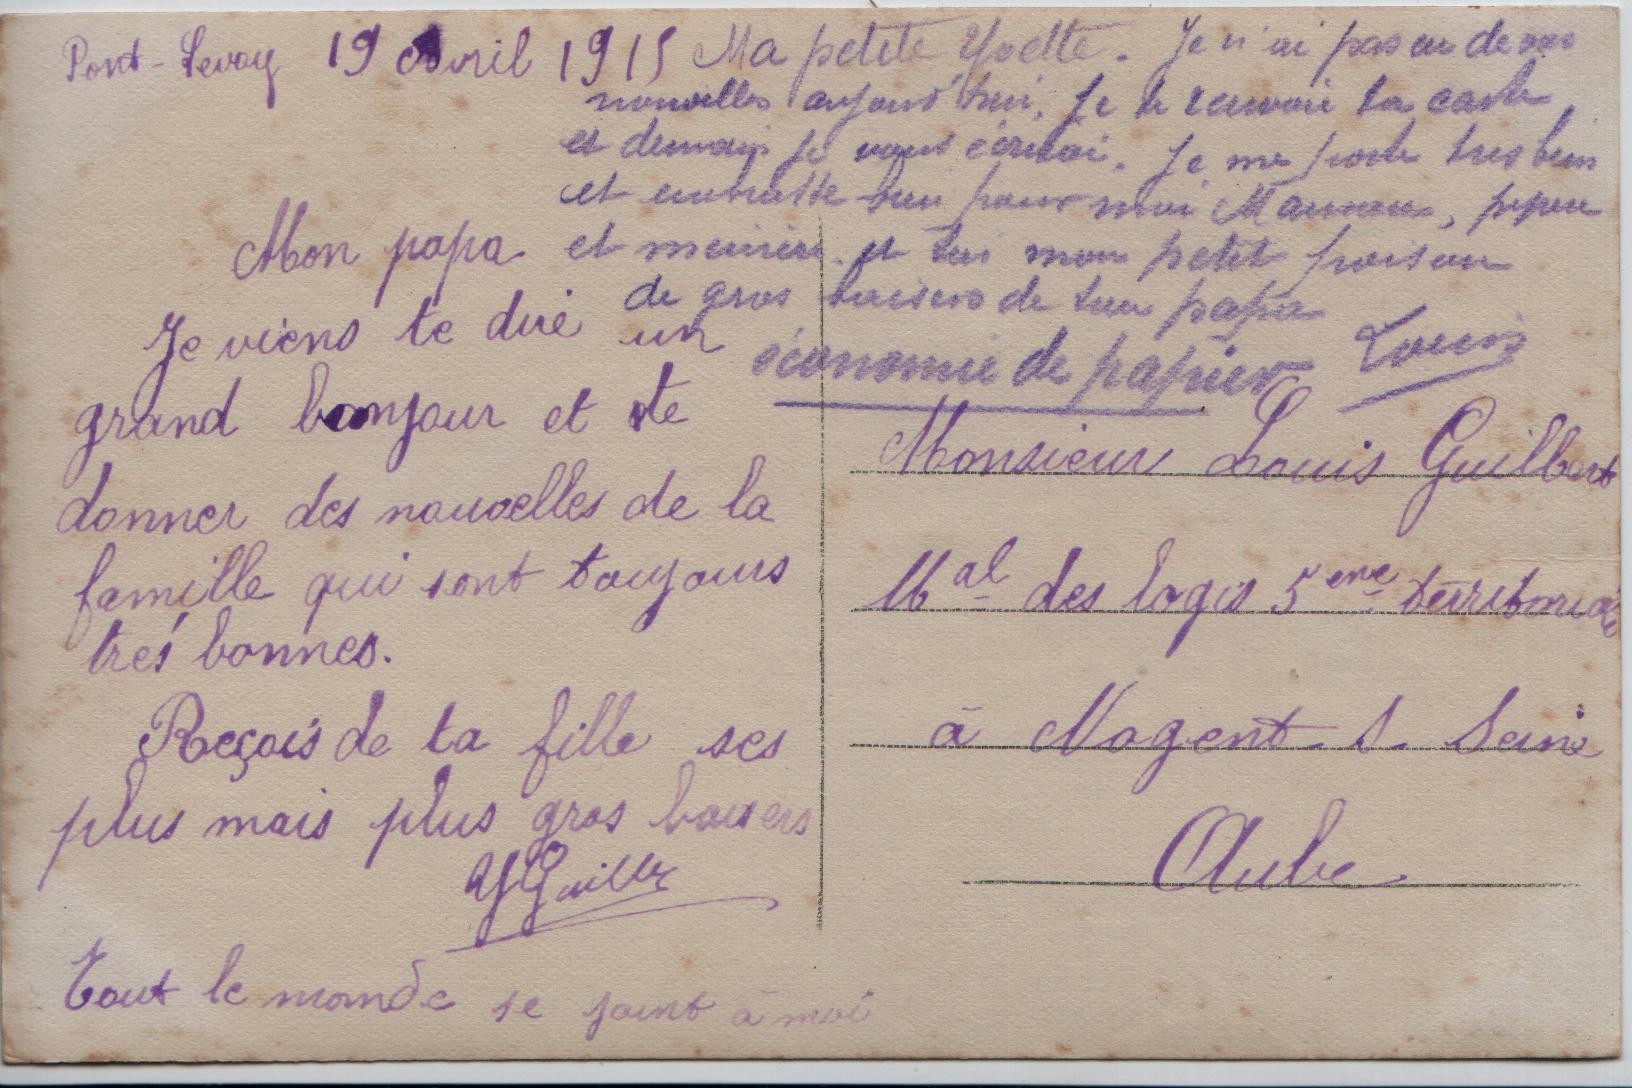 Pont-Levoy 19 Avril 1915
Mon papa
Je viens te dire un
grand bonjour et te
donner des nouvelles de la
famille qui sont toujours
trés bonnes.
Reçois de ta fille ses
plus mais plus gros baisers
YGuillb
Tout le monde se joint à moi
Ma petite Yvette. Je n'ai pas eu de vos
nouvelles aujourd'hui. Je te renvoie ta carte
et demain je vous écrirai. Je me porte tres bien
et embrasse bien pour moi Maman, pepere
et memère et toi mon petit poison
de gros baisers de ton papa
Louis
économie de papier
Monsieur Louis Guilbert
Mal des logis 5eme territoriale
à Nogent-s-Seine
Aube